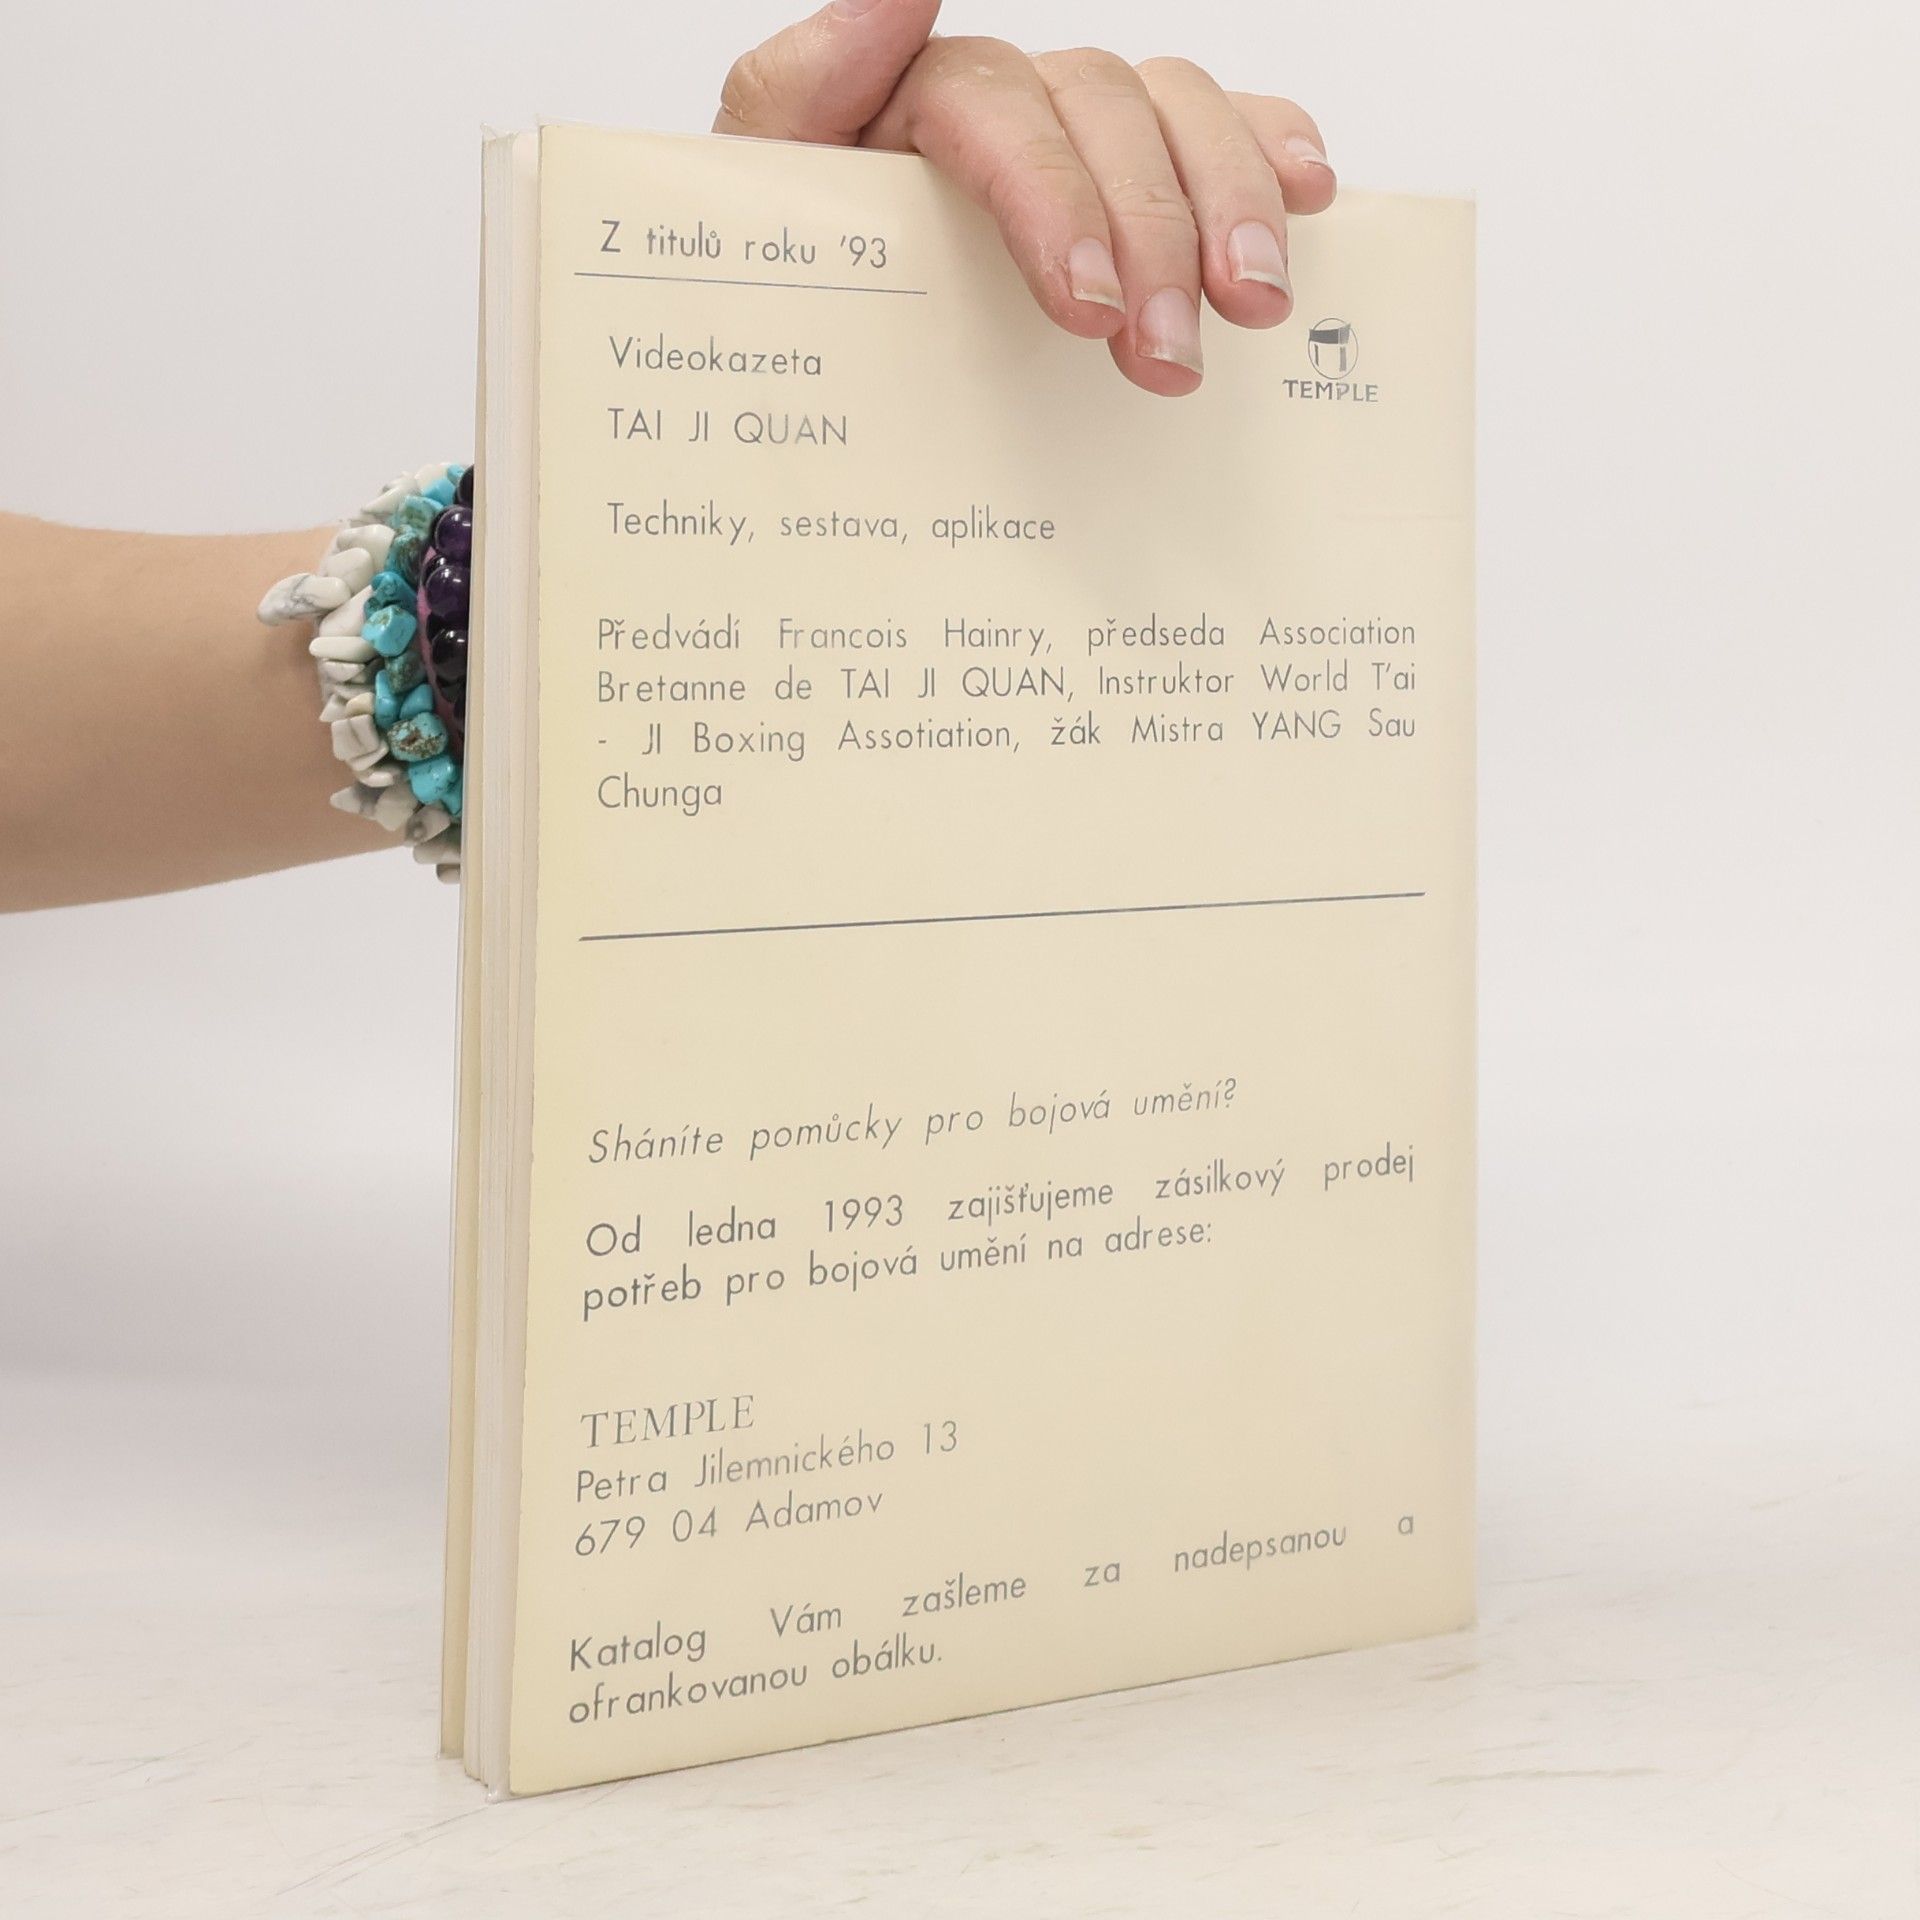 Z titulů roku '93
TEMPLE
Videokazeta
TAI JI QUAN
Techniky, sestava, aplikace
Předvádí Francois Hainry, předseda Association
Bretanne de TAI JI QUAN, Instruktor World T'ai
- JI Boxing Assotiation, žák Mistra YANG Sau
Chunga
Sháníte pomůcky pro bojová umění?
Od ledna 1993 zajišťujeme zásilkový prodej
potřeb pro bojová umění na adrese:
TEMPLE
Petra Jilemnického 13
679 04 Adamov
Katalog Vám zašleme za nadepsanou a
ofrankovanou obálku.